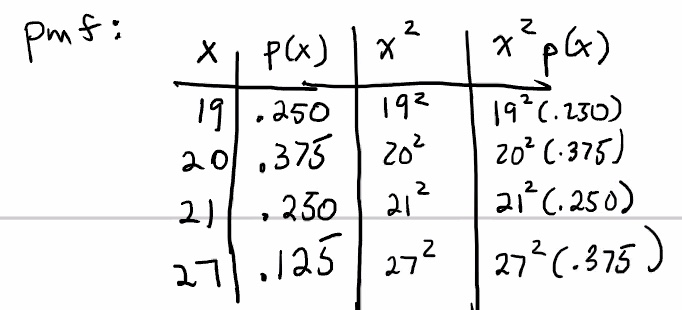 pmf:
x p(x) x² x²p(x)
19 .250 19² 19²(.250)
20 .375 20² 20²(.375)
21 .250 21² 21²(.250)
27 .125 27² 27²(.375)